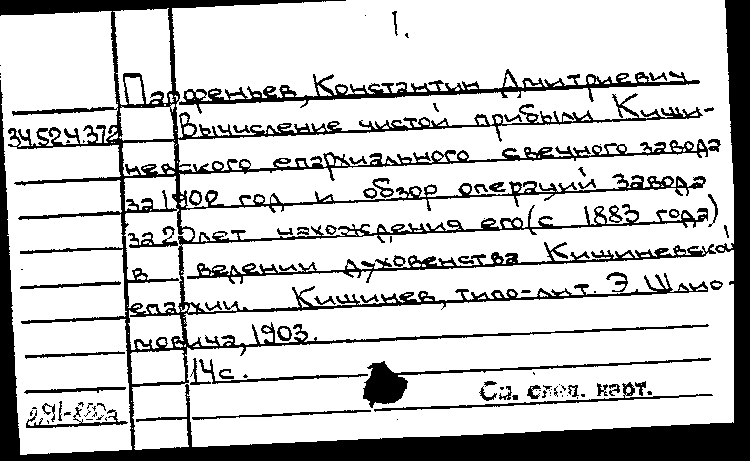 I.
Парфеньев, Константин Дмитриевич
34.52.4.372 Вычисление чистой прибыли Киши-
невского епархиального свечного завода
за 1902 год и обзор операций завода
за 20 лет нахождения его (с 1883 года)
в ведении духовенства Кишиневской
епархии. Кишинев, типо-лит. Э. Шлио-
мовича, 1903.
14 с.
См. след. карт.